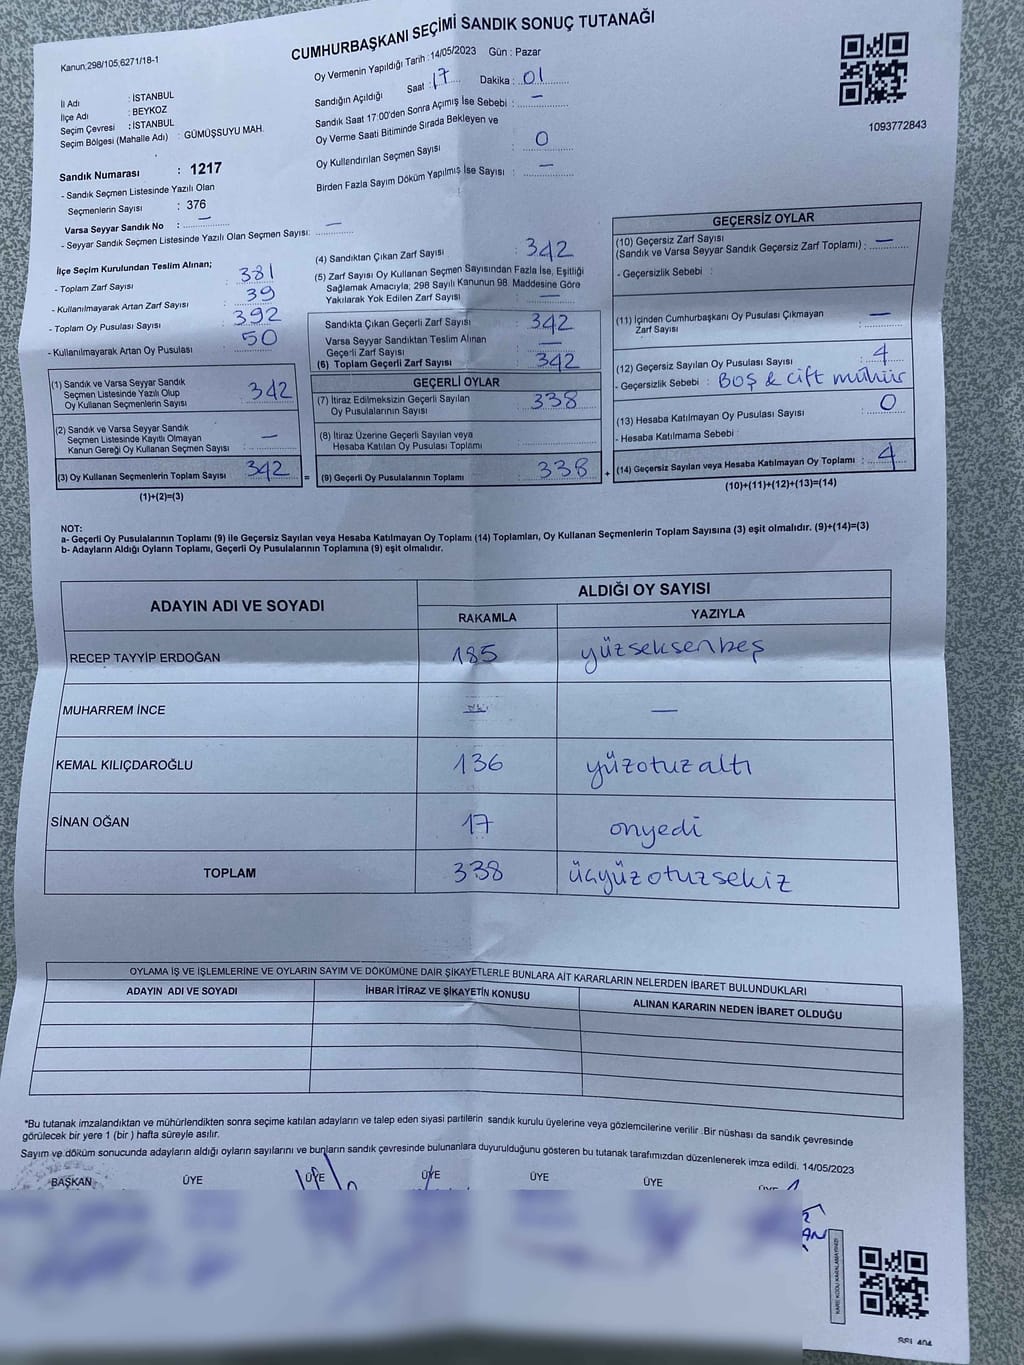 CUMHURBAŞKANI SEÇİMİ SANDIK SONUÇ TUTANAĞI
Kanun,298/105,6271/18-1
İl Adı : İSTANBUL
İlçe Adı : BEYKOZ
Seçim Çevresi : İSTANBUL
Seçim Bölgesi (Mahalle Adı) : GÜMÜŞSUYU MAH.
Sandık Numarası : 1217
- Sandık Seçmen Listesinde Yazılı Olan
Seçmenlerin Sayısı : 376
Varsa Seyyar Sandık No : —
- Seyyar Sandık Seçmen Listesinde Yazılı Olan Seçmen Sayısı: —
Oy Vermenin Yapıldığı Tarih : 14/05/2023 Gün : Pazar
Sandığın Açıldığı Saat : 17 Dakika : 01
Sandık Saat 17:00'den Sonra Açımış İse Sebebi : —
Oy Verme Saati Bitiminde Sırada Bekleyen ve
Oy Kullendırılan Seçmen Sayısı : 0
Birden Fazla Sayım Döküm Yapılmış İse Sayısı : —
1093772843
İlçe Seçim Kurulundan Teslim Alınan;
- Toplam Zarf Sayısı : 381
- Kullanılmayarak Artan Zarf Sayısı : 39
- Toplam Oy Pusulası Sayısı : 392
- Kullanılmayarak Artan Oy Pusulası : 50
(1) Sandık ve Varsa Seyyar Sandık
Seçmen Listesinde Yazılı Olup
Oy Kullanan Seçmenlerin Sayısı : 342
(2) Sandık ve Varsa Seyyar Sandık
Seçmen Listesinde Kayıtlı Olmayan
Kanun Gereği Oy Kullanan Seçmen Sayısı : —
(3) Oy Kullanan Seçmenlerin Toplam Sayısı : 342
(1)+(2)=(3)
=
(4) Sandıktan Çıkan Zarf Sayısı : 342
(5) Zarf Sayısı Oy Kullanan Seçmen Sayısından Fazla İse, Eşitliği
Sağlamak Amacıyla; 298 Sayılı Kanunun 98. Maddesine Göre
Yakılarak Yok Edilen Zarf Sayısı : —
Sandıkta Çıkan Geçerli Zarf Sayısı : 342
Varsa Seyyar Sandıktan Teslim Alınan
Geçerli Zarf Sayısı : —
(6) Toplam Geçerli Zarf Sayısı : 342
GEÇERLİ OYLAR
(7) İtiraz Edilmeksizin Geçerli Sayılan
Oy Pusulalarının Sayısı : 338
(8) İtiraz Üzerine Geçerli Sayılan veya
Hesaba Katılan Oy Pusulası Toplamı :
(9) Geçerli Oy Pusulalarının Toplamı : 338
+
GEÇERSİZ OYLAR
(10) Geçersiz Zarf Sayısı
(Sandık ve Varsa Seyyar Sandık Geçersiz Zarf Toplamı) : —
- Geçersizlik Sebebi :
(11) İçinden Cumhurbaşkanı Oy Pusulası Çıkmayan
Zarf Sayısı : —
(12) Geçersiz Sayılan Oy Pusulası Sayısı : 4
- Geçersizlik Sebebi : BOŞ & cift mühür
(13) Hesaba Katılmayan Oy Pusulası Sayısı : 0
- Hesaba Katılmama Sebebi :
(14) Geçersiz Sayılan veya Hesaba Katılmayan Oy Toplamı : 4
(10)+(11)+(12)+(13)=(14)
NOT:
a- Geçerli Oy Pusulalarının Toplamı (9) ile Geçersiz Sayılan veya Hesaba Katılmayan Oy Toplamı (14) Toplamları, Oy Kullanan Seçmenlerin Toplam Sayısına (3) eşit olmalıdır. (9)+(14)=(3)
b- Adayların Aldığı Oyların Toplamı, Geçerli Oy Pusulalarının Toplamına (9) eşit olmalıdır.
ADAYIN ADI VE SOYADI
ALDIĞI OY SAYISI
RAKAMLA YAZIYLA
RECEP TAYYİP ERDOĞAN 185 yüzseksenbeş
MUHARREM İNCE — —
KEMAL KILIÇDAROĞLU 136 yüzotuzaltı
SİNAN OĞAN 17 onyedi
TOPLAM 338 üçyüzotuzsekiz
OYLAMA İŞ VE İŞLEMLERİNE VE OYLARIN SAYIM VE DÖKÜMÜNE DAİR ŞİKAYETLERLE BUNLARA AİT KARARLARIN NELERDEN İBARET BULUNDUKLARI
ADAYIN ADI VE SOYADI İHBAR İTİRAZ VE ŞİKAYETİN KONUSU ALINAN KARARIN NEDEN İBARET OLDUĞU
*Bu tutanak imzalandıktan ve mühürlendikten sonra seçime katılan adayların ve talep eden siyasi partilerin sandık kurulu üyelerine veya gözlemcilerine verilir .Bir nüshası da sandık çevresinde
görülecek bir yere 1 (bir ) hafta süreyle asılır.
Sayım ve döküm sonucunda adayların aldığı oyların sayılarını ve bunların sandık çevresinde bulunanlara duyurulduğunu gösteren bu tutanak tarafımızdan düzenlenerek imza edildi. 14/05/2023
BAŞKAN ÜYE ÜYE ÜYE ÜYE ÜYE
KARE KODU KARALAMAYINIZ!